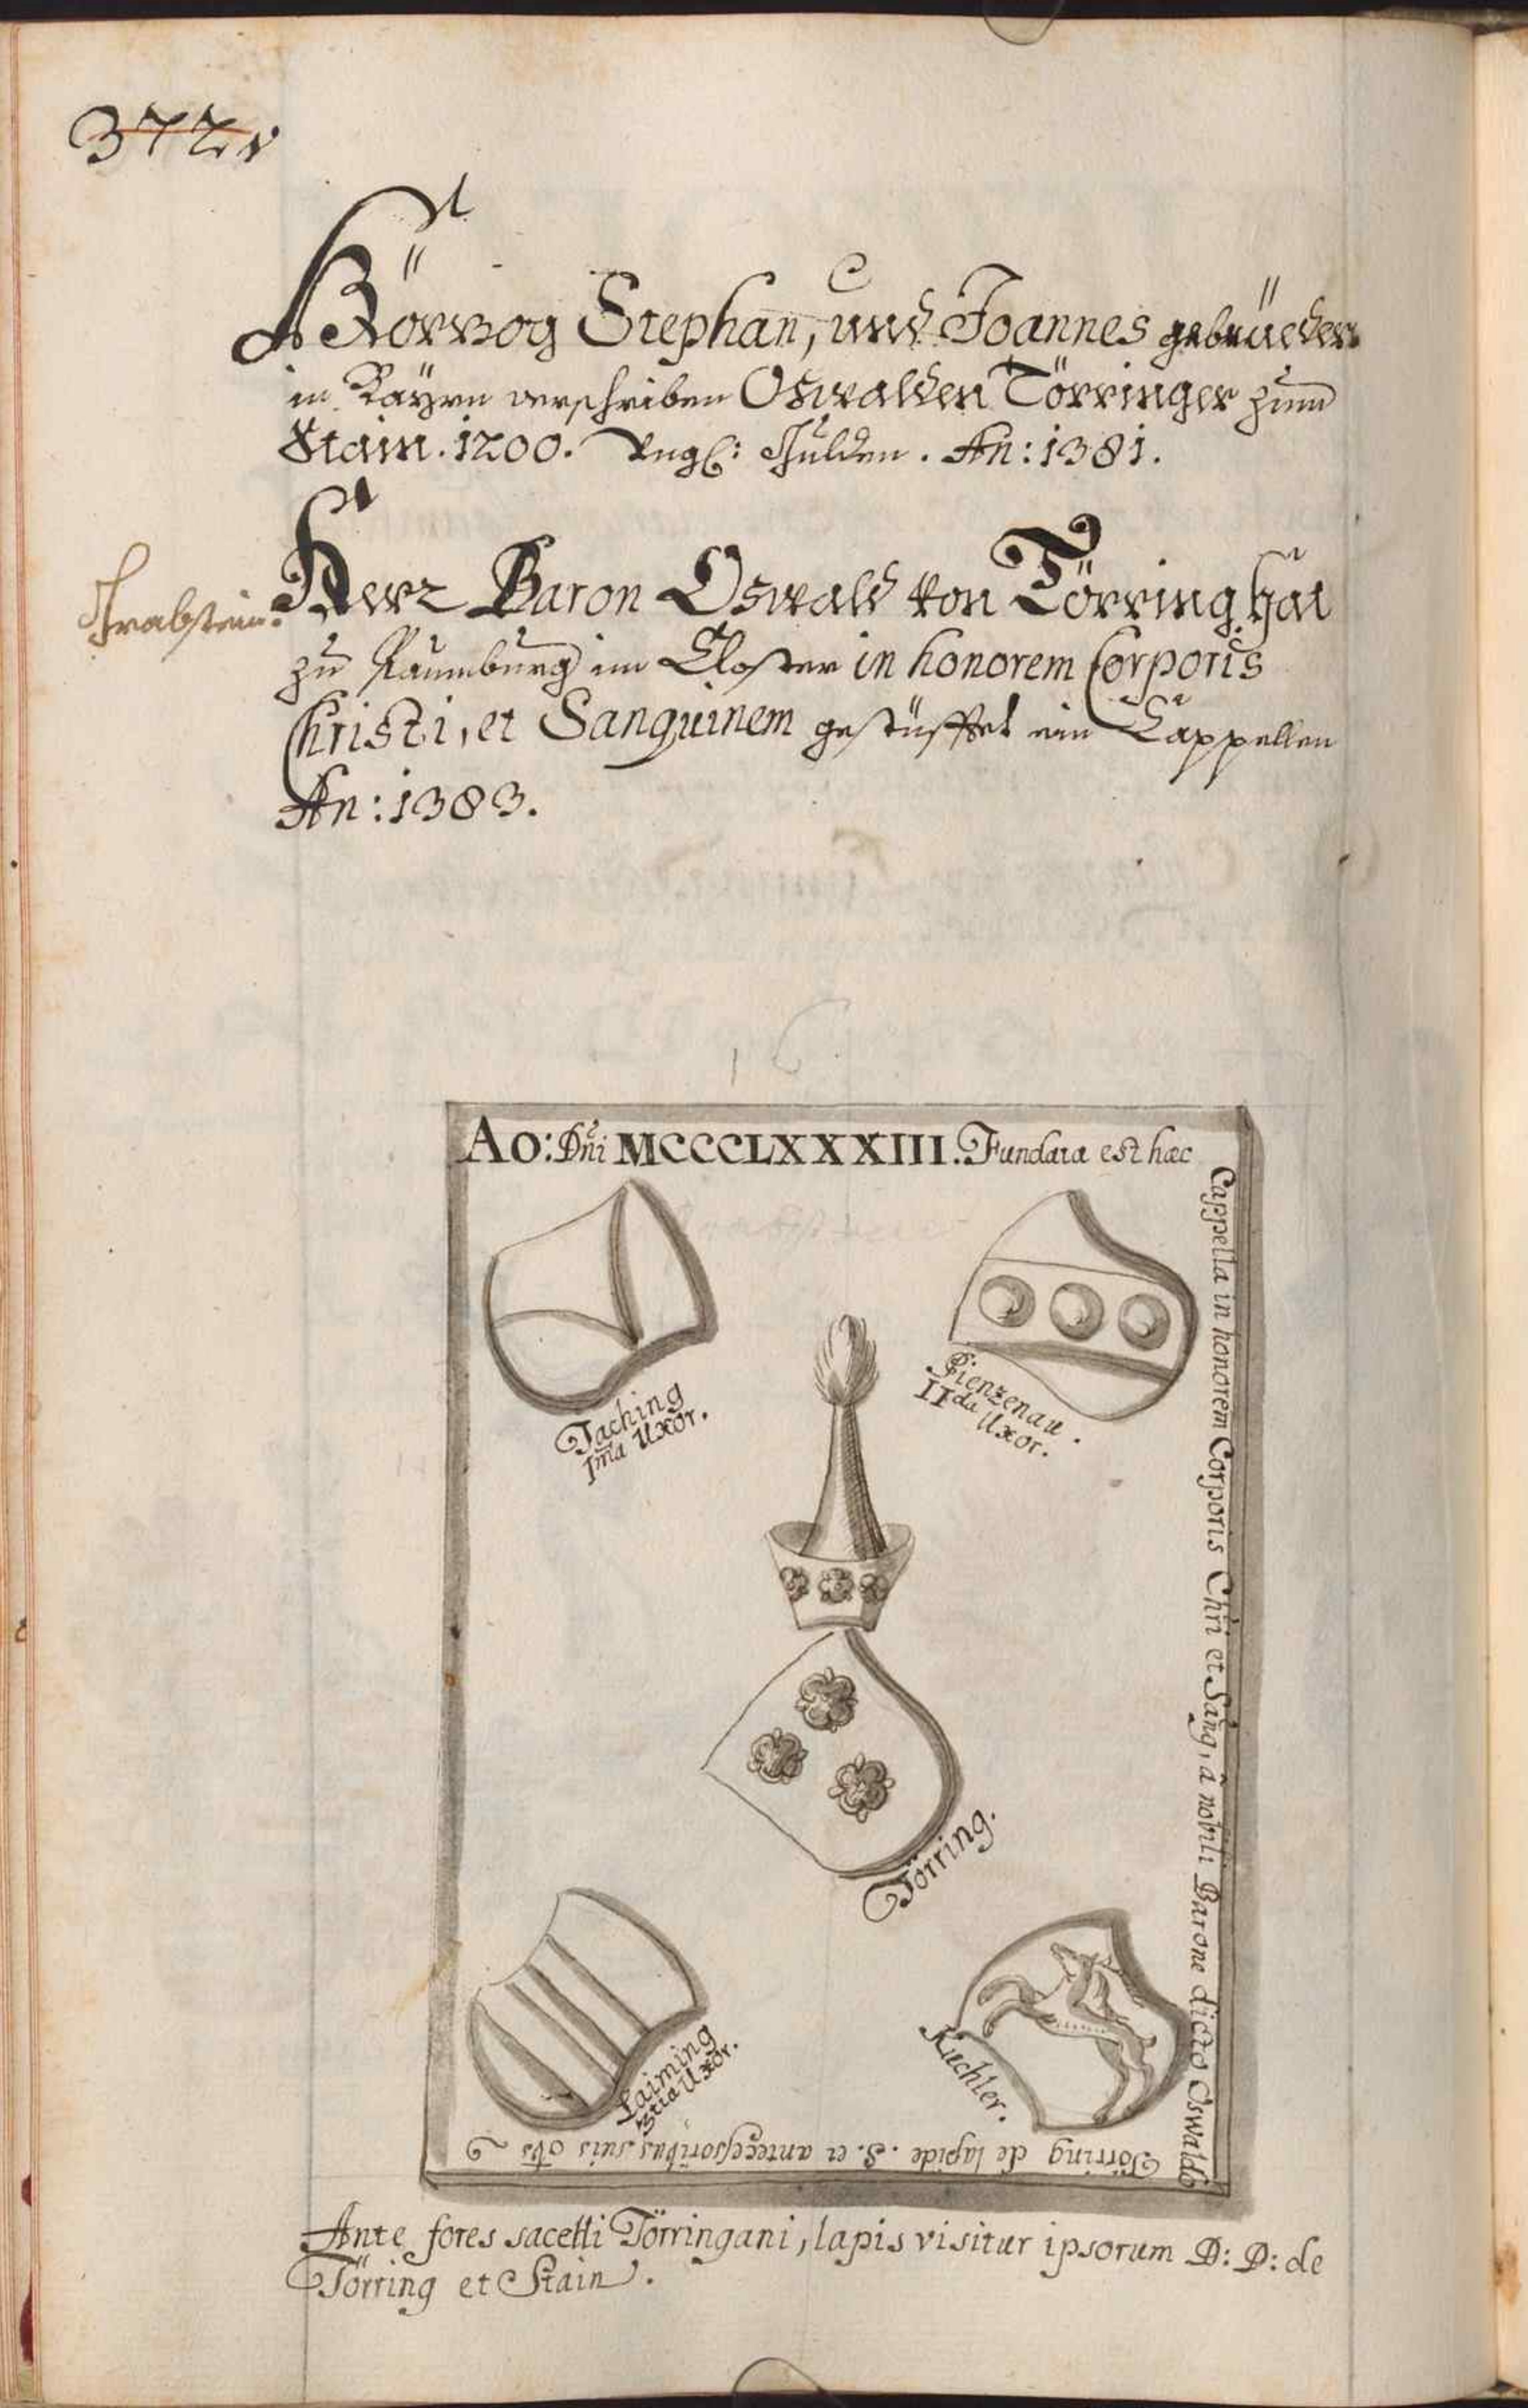 372v
Hörzog Stephan, und Joannes gebrüeder
in Bäyrn verschriben Oswalden Törringer zum
Stain. 1200. Ungl: Gulden. An: 1381.
Grabstein.
Herr Baron Oswald von Törring hat
zu Raumburg im Closter in honorem Corporis
Christi, et Sanguinem gestüfftet ein Cappellen
An: 1383.
16
Ao: Dni MCCCLXXXIII. Fundata est hæc
Cappella in honorem Corporis Chri et Sang, â nobili Barone dicto Oswaldo
Törring de lapide. S. et antecessoribus suis
Taching
Ima Uxor.
Pienzenau.
IIda Uxor.
Törring.
Laiming
3tia Uxor.
Kuchler.
Ante fores sacelli Törringani, lapis visitur ipsorum D: D: de
Törring et Stain.